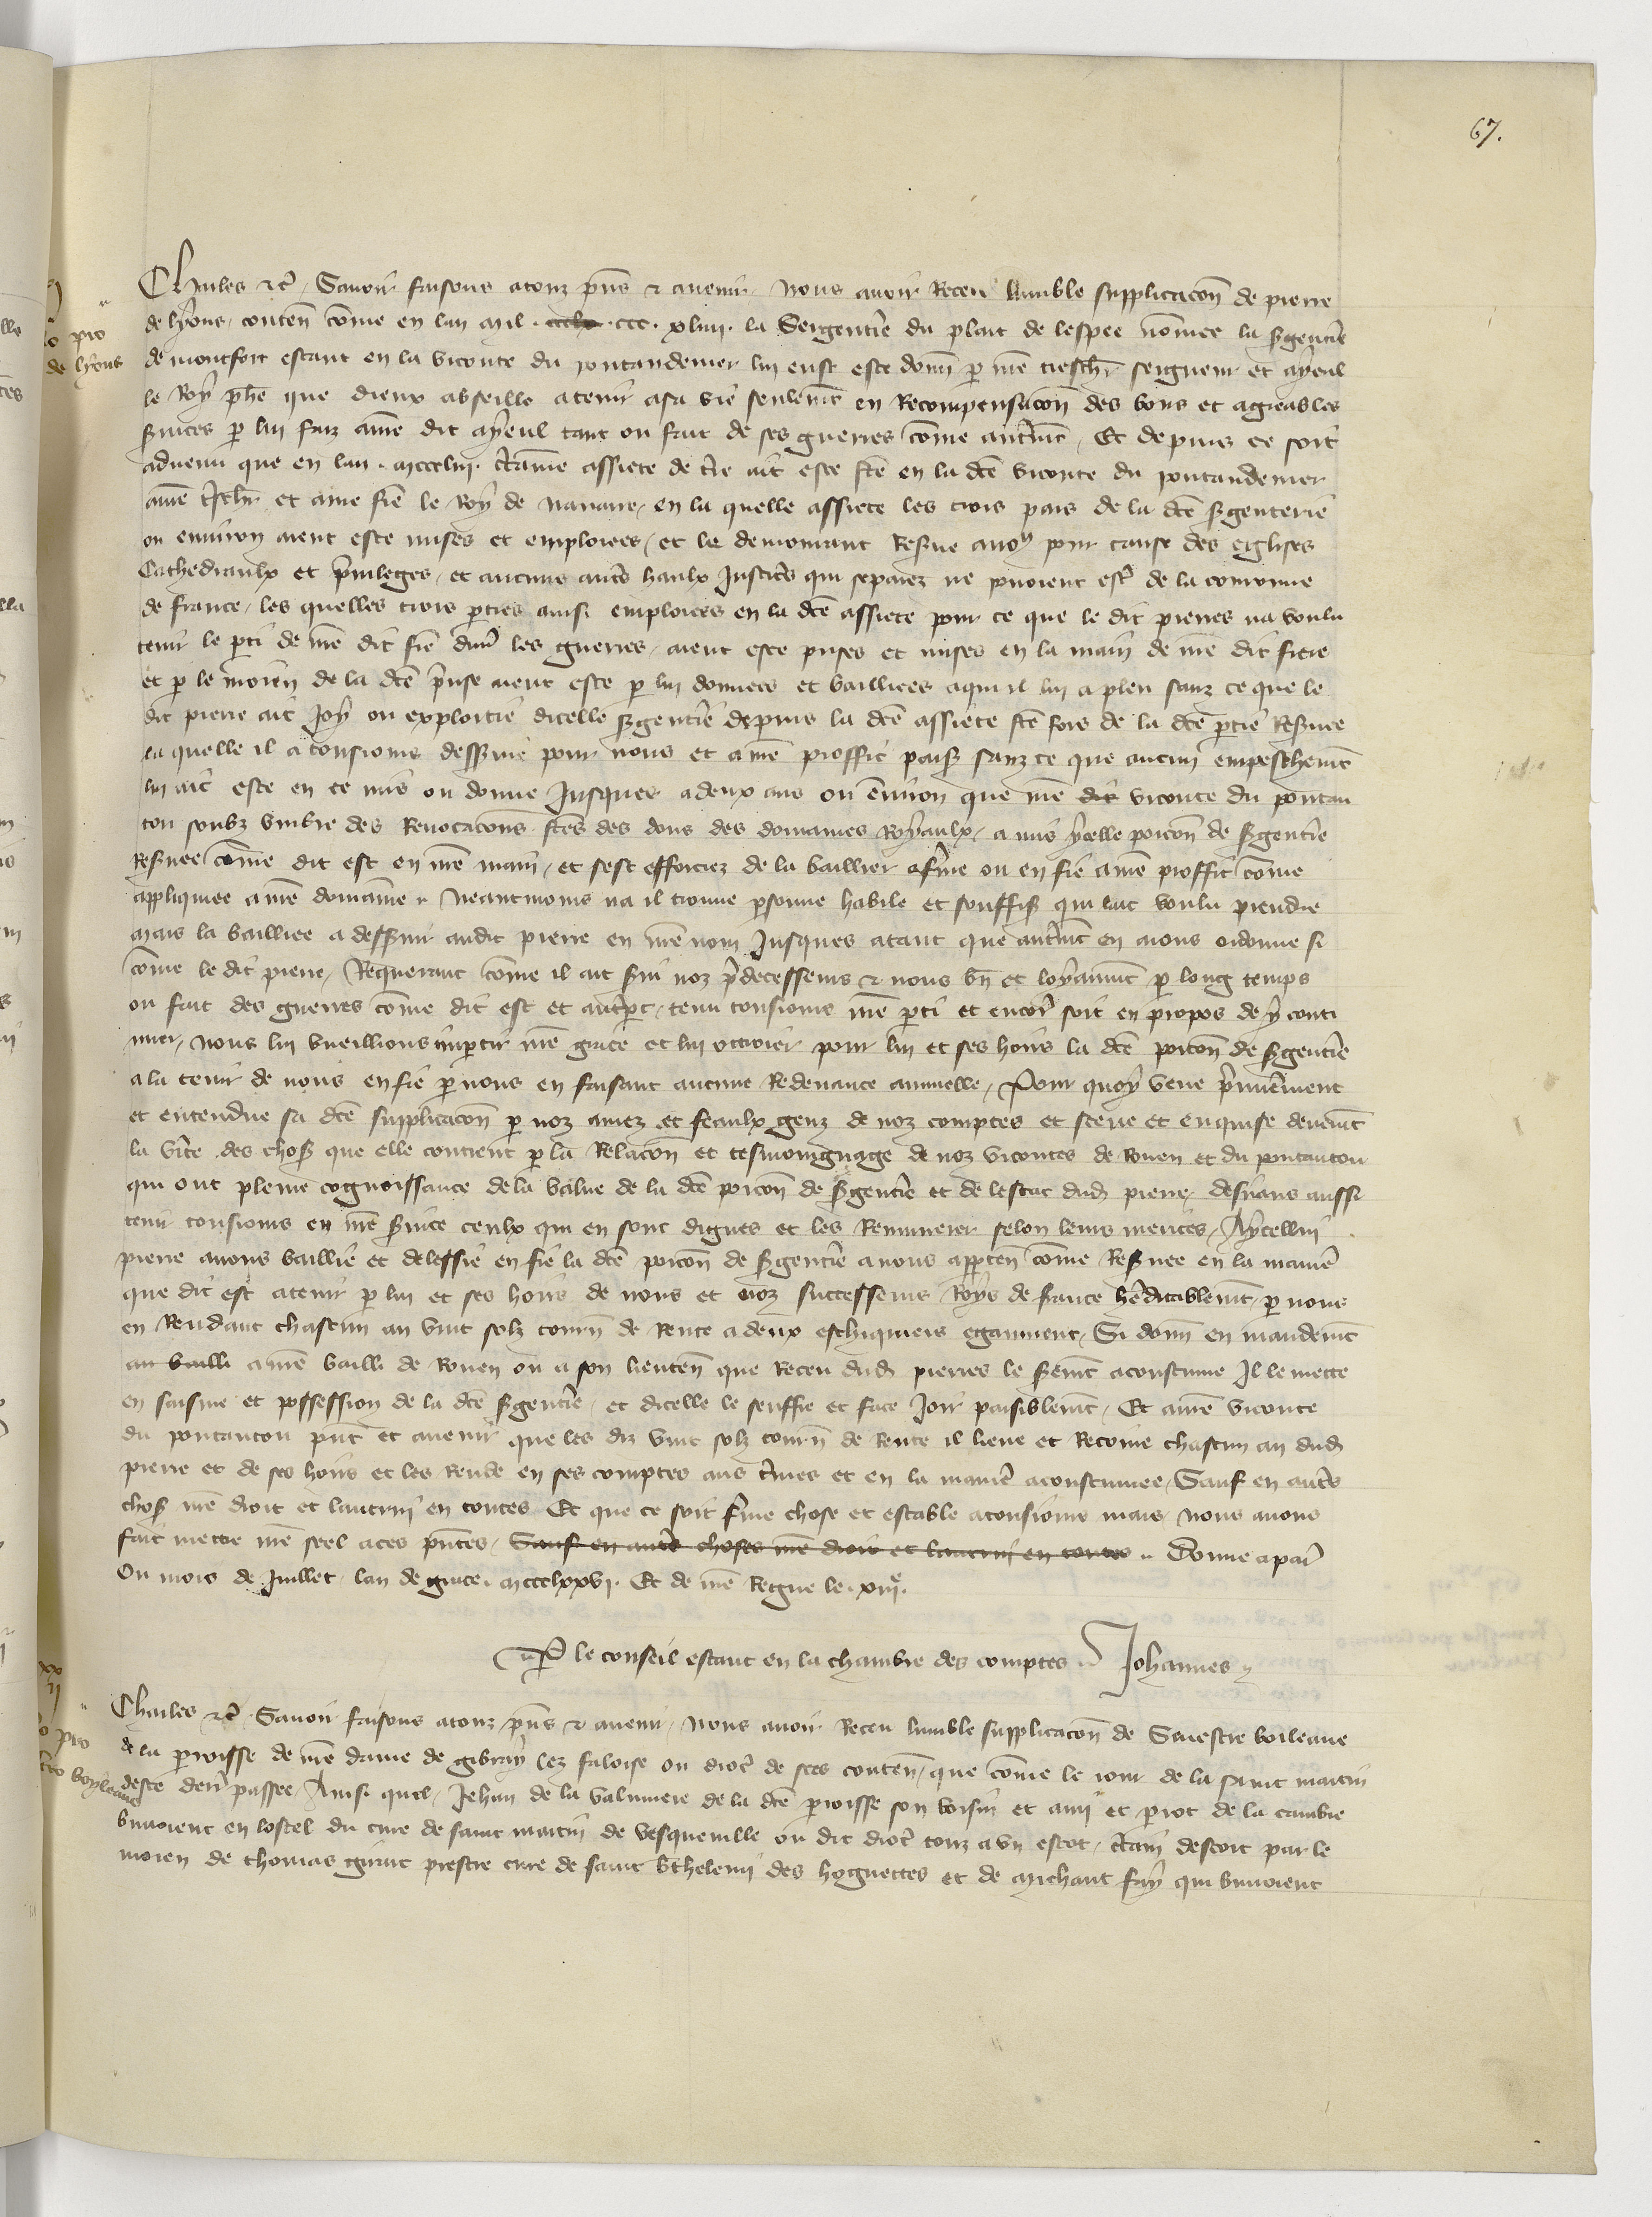 67.
Charles etc. Savoir faisons a touz pñs et avenir nous avoir receu lumble supplicacoñ de pierre
de lyons conteñ cõme en lan mil ccc xliiii la Sergenterie du plait de lespee nõmee la sgenterie
de montfort estant en la viconte du pontaudemer lui eust este donñ p nrẽ treschr seigneur et ayeul
le Roy phẽ que dieux absoille a tenir a sa vie seulemt en Recompensacoñ des bons et agreables
svices p lui faiz a nrẽ dit ayeul tant ou fait de ses guerres cõme autremt Et depuis ce soit
advenu que en lan mccclii ctaine assiete de tre ait este fcẽ en la dcẽ viconte du pontaudemer
a nrẽ tschr et ame frẽ le Roy de navarre en la quelle assiete les trois pars de la dcẽ sgenterie
ou environ aient este mises et emploiees et le demourant Resvve a nous pour cause des eglises
Cathedraulx et pvileges et aucuns autrs haulx Justices qui separez ne povoient estr de la couronne
de france les quelles trois pties ainsi emploiees en la dcẽ assiete pour ce que le dit pierres na voulu
tenir le pti de nrẽ dit frẽ dur les guerres aient este prises et mises en la main de nrẽ dit frere
et p le moien de la dcẽ prinse aient este p lui donnees et baillees a qui il lui a pleu sanz ce que le
dit pierre ait Joy ou exploitie dicelle sgenterie depuis la dcẽ assiete fcẽ fors de la dcẽ ptie Resvee
la quelle il a tousiours desservie pour nous et a nrẽ proffit paisis sanz ce que aucun empeschemt
lui ait este en ce mis ou donne Jusques a deux ans ou environ que nrẽ dit viconte du pontau
tou soubz umbre des Revocacons fcẽs des dons des domaines Royaulx a mis ycelle porcoñ de sgenterie
Resvee cõme dit est en nrẽ main et sest efforciez de la baillier a frme ou en fie a nrẽ proffit cõme
appliquee a nrẽ domaine Neantmoins na il trouve psonne habile et souffis qui lait voulu prendre
mais la bailliee a desservir audit pierre en nrẽ nom Jusques a tant que autremt en aions ordonne si
cõme le dit pierre Requerant cõme il ait svi noz pdecesseurs et nous bñ et loyaumt p long temps
ou fait des guerres cõme dit est et autrept tenu tousiours nrẽ pti et encor soit en propos de y conti
nuer nous lui vueillions impartir nrẽ grace et lui ottroier pour lui et ses hoirs la dcẽ porcoñ de sgenterie
a la tenir de nous en fie p nous en faisant aucune Redevance annuelle Pour quoy veue pmierement
et entendue sa dcẽ supplicacoñ p noz amez et feaulx genz de noz comptes et sceue et enquise deuemt
la vite des choses que elle contient p la Relacoñ et tesmoingnage de noz vicontes de Rouen et du pontautou
qui ont pleine cognoissance de la value de la dcẽ porcoñ de sgenterie et de lestat dud pierre desirans aussi
tenir tousiours en nrẽ svice ceulx qui en sont dignes et les Remunerer selon leurs merites A ycellui
pierre avons baillie et delessie en fie la dcẽ porcoñ de sgenterie a nous apparteñ cõme Resvee en la maniẽ
que dit est a tenir p lui et ses hoirs de nous et noz successeurs Roys de france heditablemt p nous
en Rendant chascun an vint solz tourñ de Rente a deux eschiquiers egaument Si donñ en mandemt
au bailli a nrẽ bailli de Rouen ou a son lieuteñ que Receu dud pierres le semt acoustume Il le mette
en saisine et possession de la dcẽ sgenterie et dicelle le seuffre et face Joir paisiblemt Et a nrẽ viconte
du pontautou pñt et avenir que les diz vint solz tourñ de Rente il lieve et Recoive chascun an dud
pierre et de ses hoirs et les Rende en ses comptes aus trmes et en la maniẽ acoustumee Sauf en autrs
chos nrẽ droit et lautrui en toutes Et que ce soit frme chose et estable a tousiours mais nous avons
fait mettre nrẽ seel a ces pñtes Sauf en autrs choses nrẽ droit et lautrui en toutes Donne a par
Ou mois de Juillet lan de grace mccclxxvi Et de nrẽ Regne le xiiie
P le conseil estant en la chambre des comptes Johannes
Charles etc Savoir faisons a touz pñs et avenir nous avoir Receu lumble supplicacoñ de Sauvestre boileaue
de la paroisse de nrẽ dame de gibray lez faloise ou dioc de sees conteñ que cõme le jour de la saint martin
deste derr passee Ainsi quil Jehan de la valuniere de la dcẽ paroisse son voisin et ami et perot de la cambre
buvoient en lostel du cure de saint martin de vesqueville ou dit dioc touz a un escot ctain descort par le
moien de thomas girart prestre cure de saint bthelemi des hoguettes et de michaut fay qui buvoient